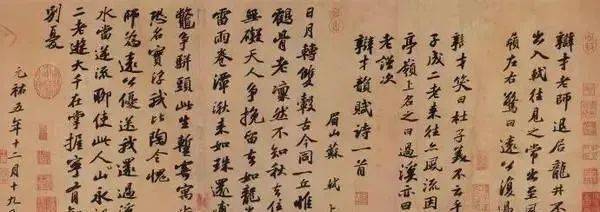 辯才老師退居龍井不
出入軾往見之常出至風
嶺左右驚曰遠公復過
辯才笑曰杜子美不云乎
子成二老來往亦風流因
亭嶺上名之曰過溪亦曰
老謹次
辯才韻賦詩一首
眉山蘇軾上
日月轉雙轂古今同一丘惟
鶴骨老凜然不知秋去住
無礙天人爭挽留去如龍
雷雨卷潭湫來如珠還
鼈爭駢頭此生暫寄寓
恐名實浮我比陶令愧
師為遠公優送我還過
水當逆流聊使此人山永
二老遊大千在掌握寧有
別憂
元祐五年十二月十九